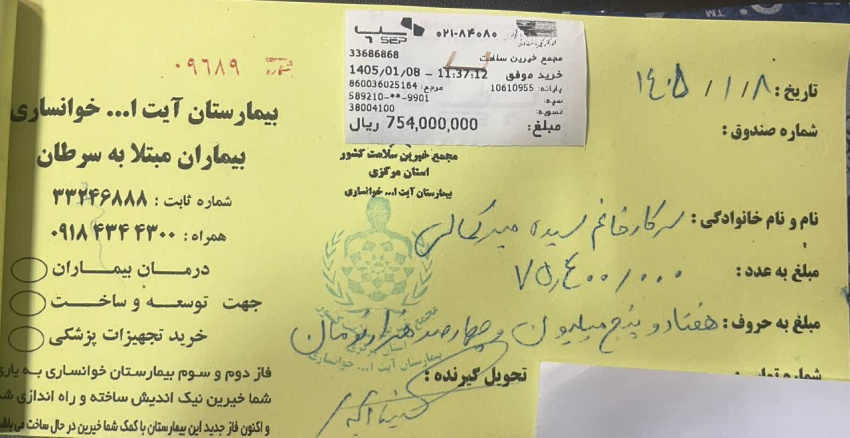 سپ
SEP
۰۲۱-۸۴۰۸۰
33686868
مجمع خیرین سلامت
خرید موفق
1405/01/08 - 11:37:12
پایانه: 10610955 مرجع: 860036025164
589210-**-9901
38004100
مبلغ: 754,000,000 ریال
شماره ۰۹6۸۹
بیمارستان آیت ا... خوانساری
بیماران مبتلا به سرطان
شماره ثابت : ۳۳۲۴۶۸۸۸
همراه : ۰۹۱۸ ۴۳۴ ۴۳۰۰
درمان بیماران
جهت توسعه و ساخت
خرید تجهیزات پزشکی
فاز دوم و سوم بیمارستان خوانساری به یاری
شما خیرین نیک اندیش ساخته و راه اندازی شد
و اکنون فاز جدید این بیمارستان با کمک شما خیرین در حال ساخت می باشد
مجمع خیرین سلامت کشور
استان مرکزی
بیمارستان آیت ا... خوانساری
تاریخ : ۱۴۰۵/۱/۸
شماره صندوق :
نام و نام خانوادگی : سرکار خانم سیده میرکمالی
مبلغ به عدد : ۷۵,۴۰۰/۰۰۰
مبلغ به حروف : هفتاد و پنج میلیون و چهارصد هزار تومان
شماره تماس :
تحویل گیرنده :